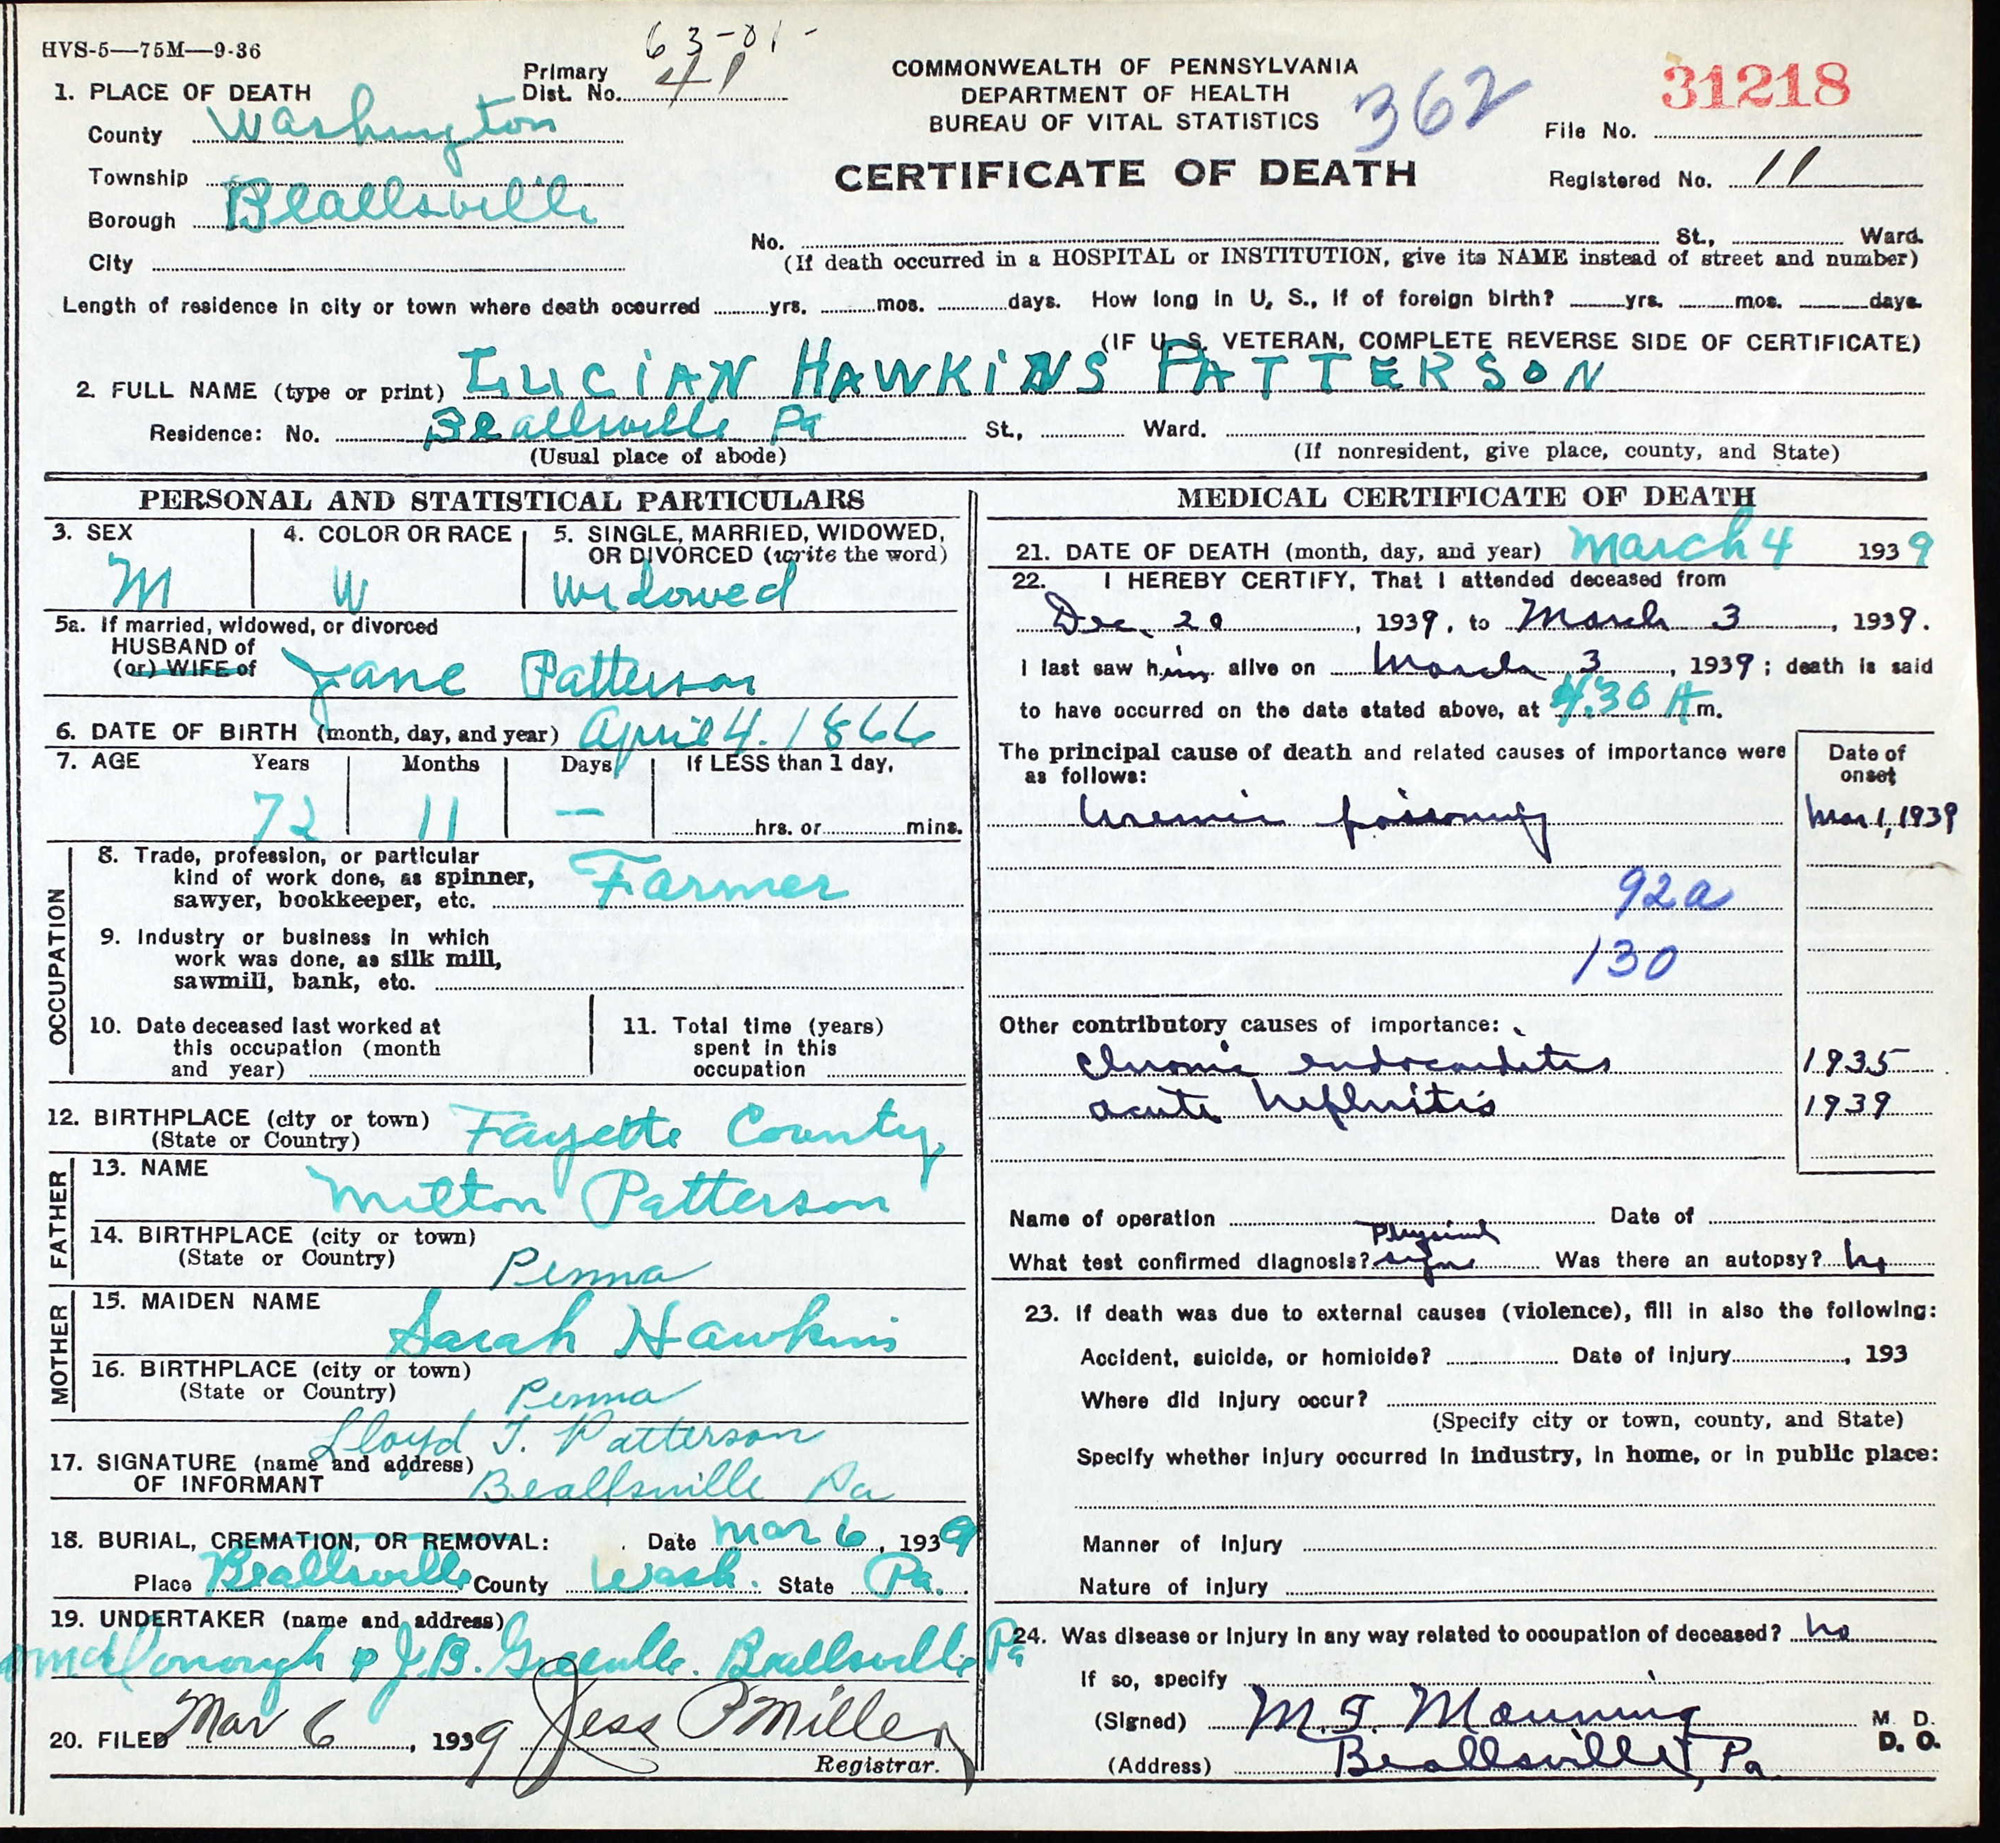 HVS-5—75M—9-36
63-01-
Primary
Dist. No. 41
COMMONWEALTH OF PENNSYLVANIA
DEPARTMENT OF HEALTH
BUREAU OF VITAL STATISTICS
362
31218
File No.
CERTIFICATE OF DEATH
Registered No. 11
1. PLACE OF DEATH
County Washington
Township
Borough Beallsville
City
No. St., Ward.
(If death occurred in a HOSPITAL or INSTITUTION, give its NAME instead of street and number)
Length of residence in city or town where death occurred yrs. mos. days. How long in U. S., if of foreign birth? yrs. mos. days.
(IF U. S. VETERAN, COMPLETE REVERSE SIDE OF CERTIFICATE)
2. FULL NAME (type or print) LUCIAN HAWKINS PATTERSON
Residence: No. Beallsville Pa St., Ward.
(Usual place of abode) (If nonresident, give place, county, and State)
PERSONAL AND STATISTICAL PARTICULARS
3. SEX 4. COLOR OR RACE 5. SINGLE, MARRIED, WIDOWED,
OR DIVORCED (write the word)
M W Widowed
5a. If married, widowed, or divorced
HUSBAND of
(or) WIFE of Jane Patterson
6. DATE OF BIRTH (month, day, and year) April 4. 1866
7. AGE Years Months Days If LESS than 1 day,
72 11 — hrs. or mins.
OCCUPATION
8. Trade, profession, or particular
kind of work done, as spinner,
sawyer, bookkeeper, etc. Farmer
9. Industry or business in which
work was done, as silk mill,
sawmill, bank, etc.
10. Date deceased last worked at
this occupation (month
and year)
11. Total time (years)
spent in this
occupation
12. BIRTHPLACE (city or town) Fayette County
(State or Country)
FATHER
13. NAME Milton Patterson
14. BIRTHPLACE (city or town)
(State or Country) Penna
MOTHER
15. MAIDEN NAME Sarah Hawkins
16. BIRTHPLACE (city or town)
(State or Country) Penna
Lloyd T. Patterson
17. SIGNATURE (name and address)
OF INFORMANT Beallsville Pa
18. BURIAL, CREMATION, OR REMOVAL: Date Mar 6, 1939
Place Beallsville County Wash. State Pa.
19. UNDERTAKER (name and address)
McDonough & J.B. Beallsville Pa
20. FILED Mar 6, 1939 Jess P Miller
Registrar.
MEDICAL CERTIFICATE OF DEATH
21. DATE OF DEATH (month, day, and year) March 4 1939
22. I HEREBY CERTIFY, That I attended deceased from
Dec. 20, 1939, to March 3, 1939.
I last saw him alive on March 3, 1939; death is said
to have occurred on the date stated above, at 4:30 A m.
The principal cause of death and related causes of importance were
as follows:
Date of
onset
Uremic poisoning Mar 1, 1939
92a
130
Other contributory causes of importance:
Chronic endocarditis 1935
acute Nephritis 1939
Name of operation Date of
What test confirmed diagnosis? Physical signs Was there an autopsy? no
23. If death was due to external causes (violence), fill in also the following:
Accident, suicide, or homicide? Date of injury , 193
Where did injury occur?
(Specify city or town, county, and State)
Specify whether injury occurred in industry, in home, or in public place:
Manner of injury
Nature of injury
24. Was disease or injury in any way related to occupation of deceased? no
If so, specify
(Signed) M. D.
D. O.
(Address) Beallsville, Pa